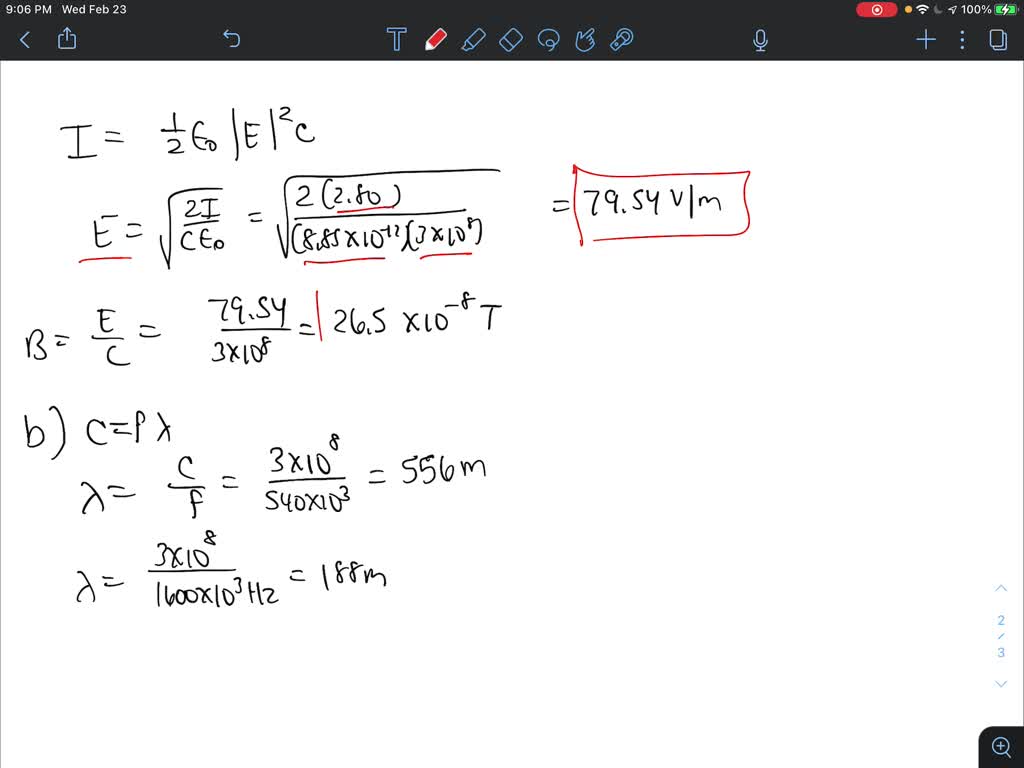 9:06 PM Wed Feb 23 100%
T
I = 1/2 ε₀ |E|² c
E = √(2I / cε₀) = √(2(2.80) / (8.85×10⁻¹²)(3×10⁸)) = 79.54 V/m
B = E/c = 79.54 / 3×10⁸ = 26.5 ×10⁻⁸ T
b) c=fλ
λ = c/f = 3×10⁸ / 540×10³ = 556m
λ = 3×10⁸ / 1600×10³ Hz = 188m
2
/
3